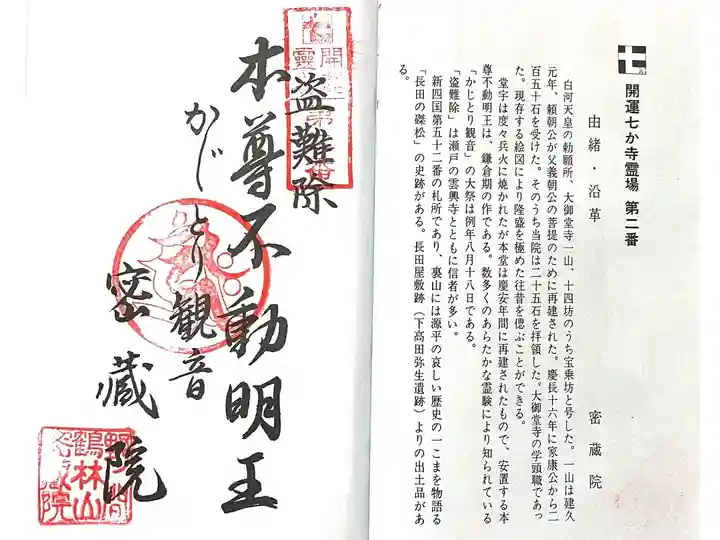 開運七か寺霊場 第二番
由緒・沿革
密蔵院
白河天皇の勅願所、大御堂寺一山、十四坊のうち宝乗坊と号した。一山は建久
元年、頼朝公が父義朝公の菩提のために再建された。慶長十六年に家康公から二
百五十石を受けた。そのうち当院は二十五石を拝領した。大御堂寺の学頭職であっ
た。現存する絵図により隆盛を極めた往昔を偲ぶことができる。
堂宇は度々兵火に焼かれたが本堂は慶安年間に再建されたもので、安置する本
尊不動明王は、鎌倉期の作である。数多くのあらたかな霊験により知られている
「かじとり観音」の大祭は例年八月十八日である。
「盗難除」は瀬戸の雲興寺とともに信者が多い。
新四国第五十二番の札所であり、裏山には源平の哀しい歴史の一こまを物語る
「長田の磔松」の史跡がある。長田屋敷跡(下高田弥生遺跡)よりの出土品があ
る。
盗難除
本尊不動明王
かじとり観音
密蔵院
鶴林山